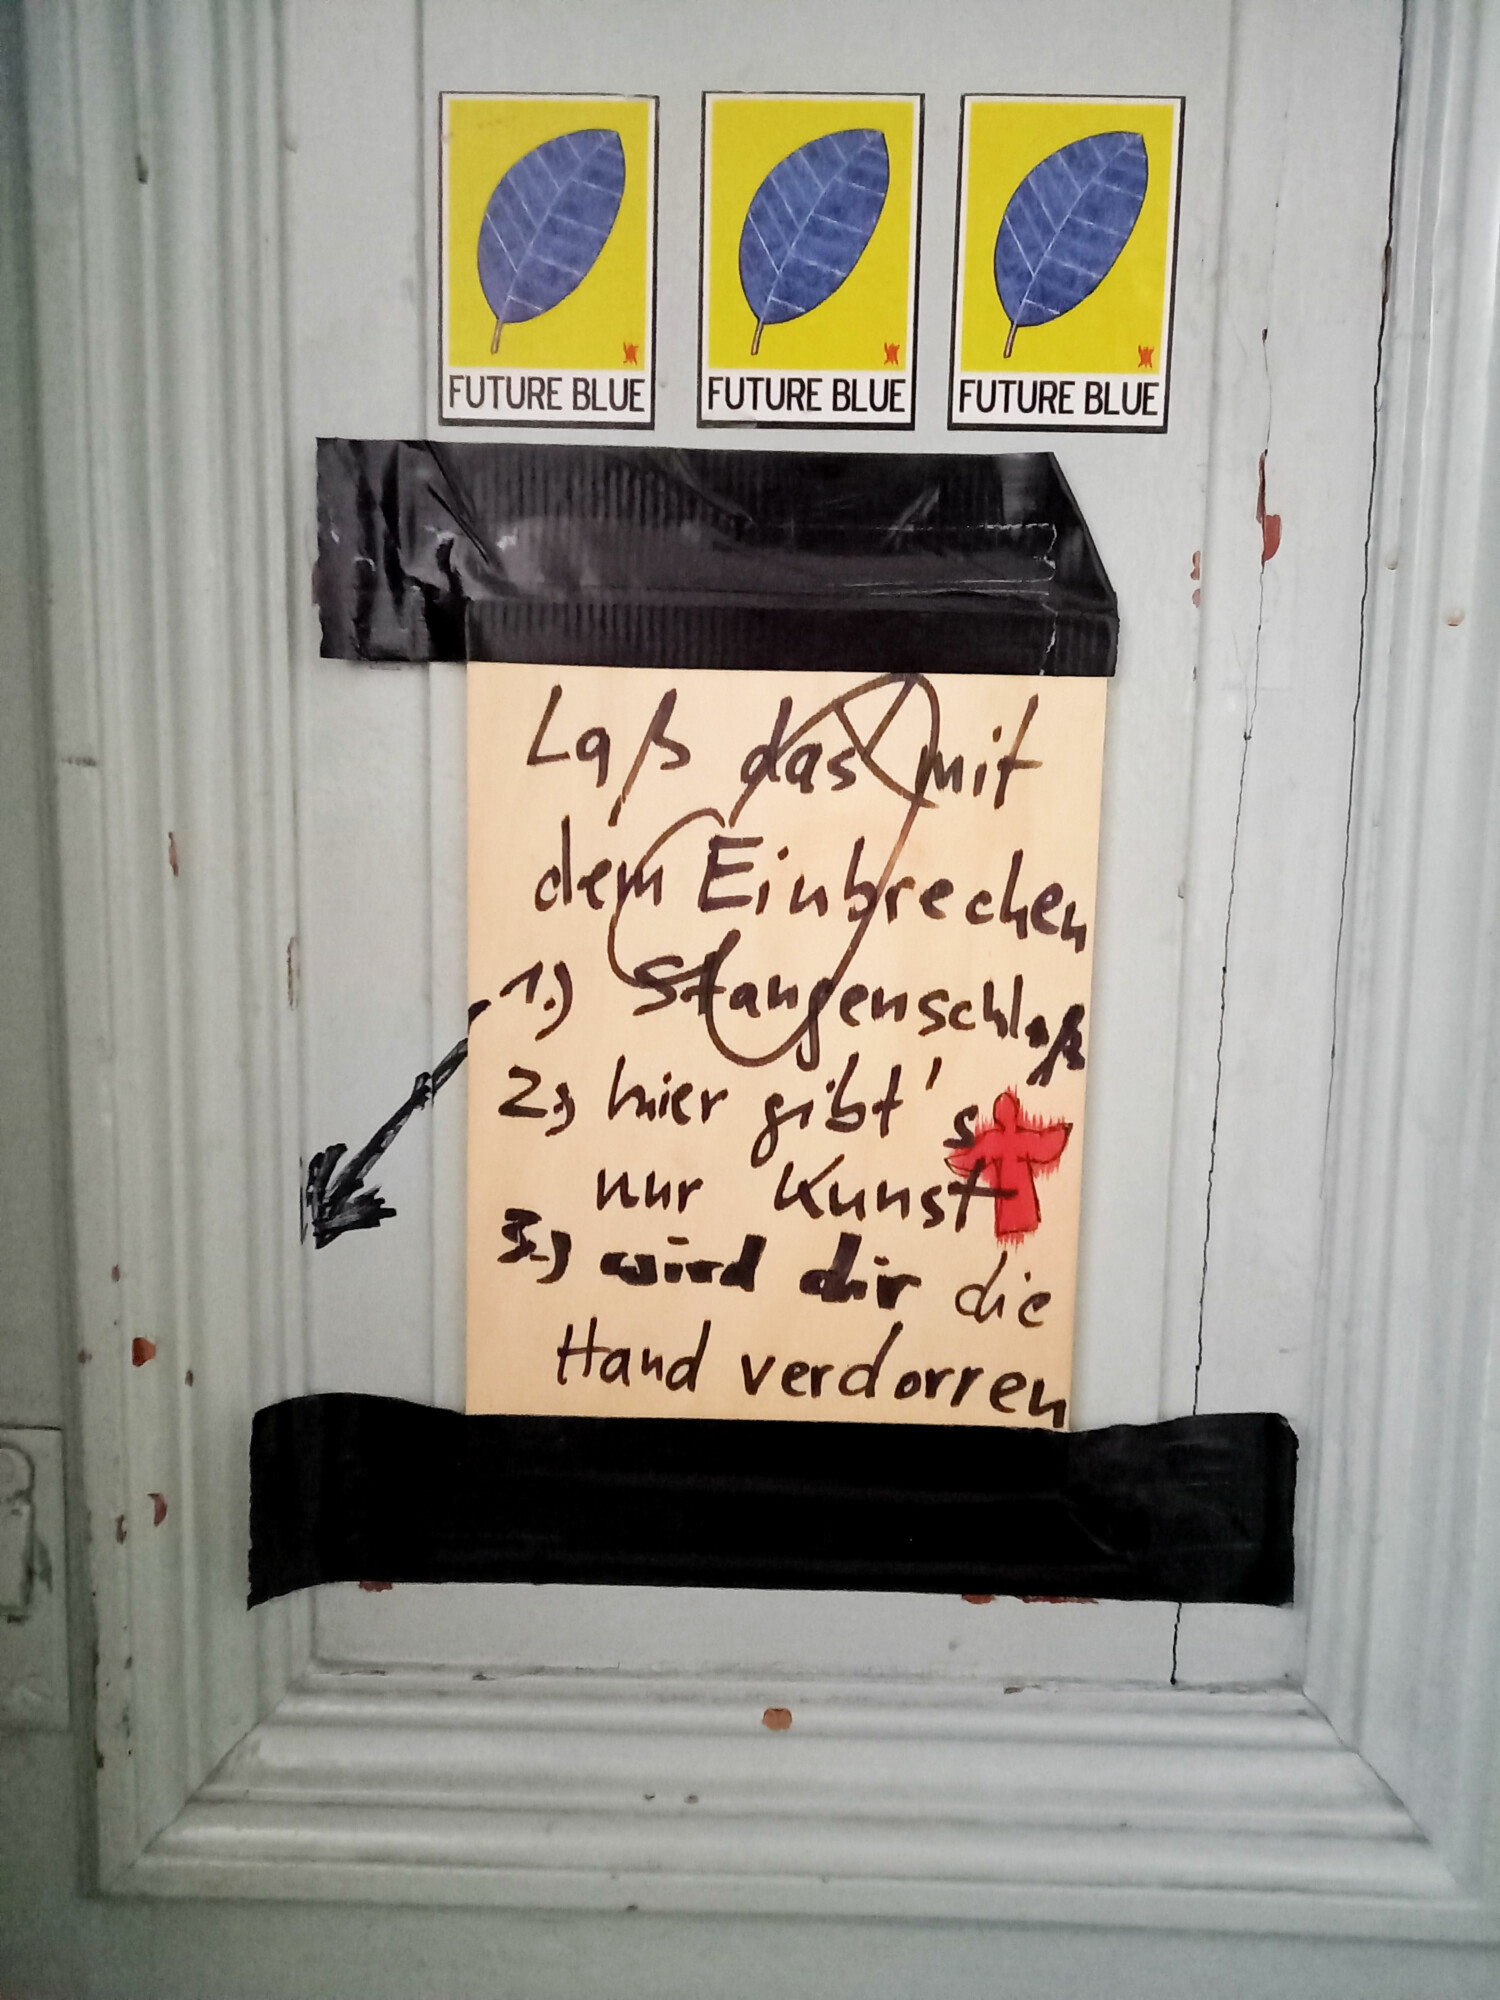 FUTURE BLUE FUTURE BLUE FUTURE BLUE
Laß das mit
dem Einbrechen
1.) Stangenschloß
2.) hier gibt's
nur Kunst
3.) wird dir die
Hand verdorren